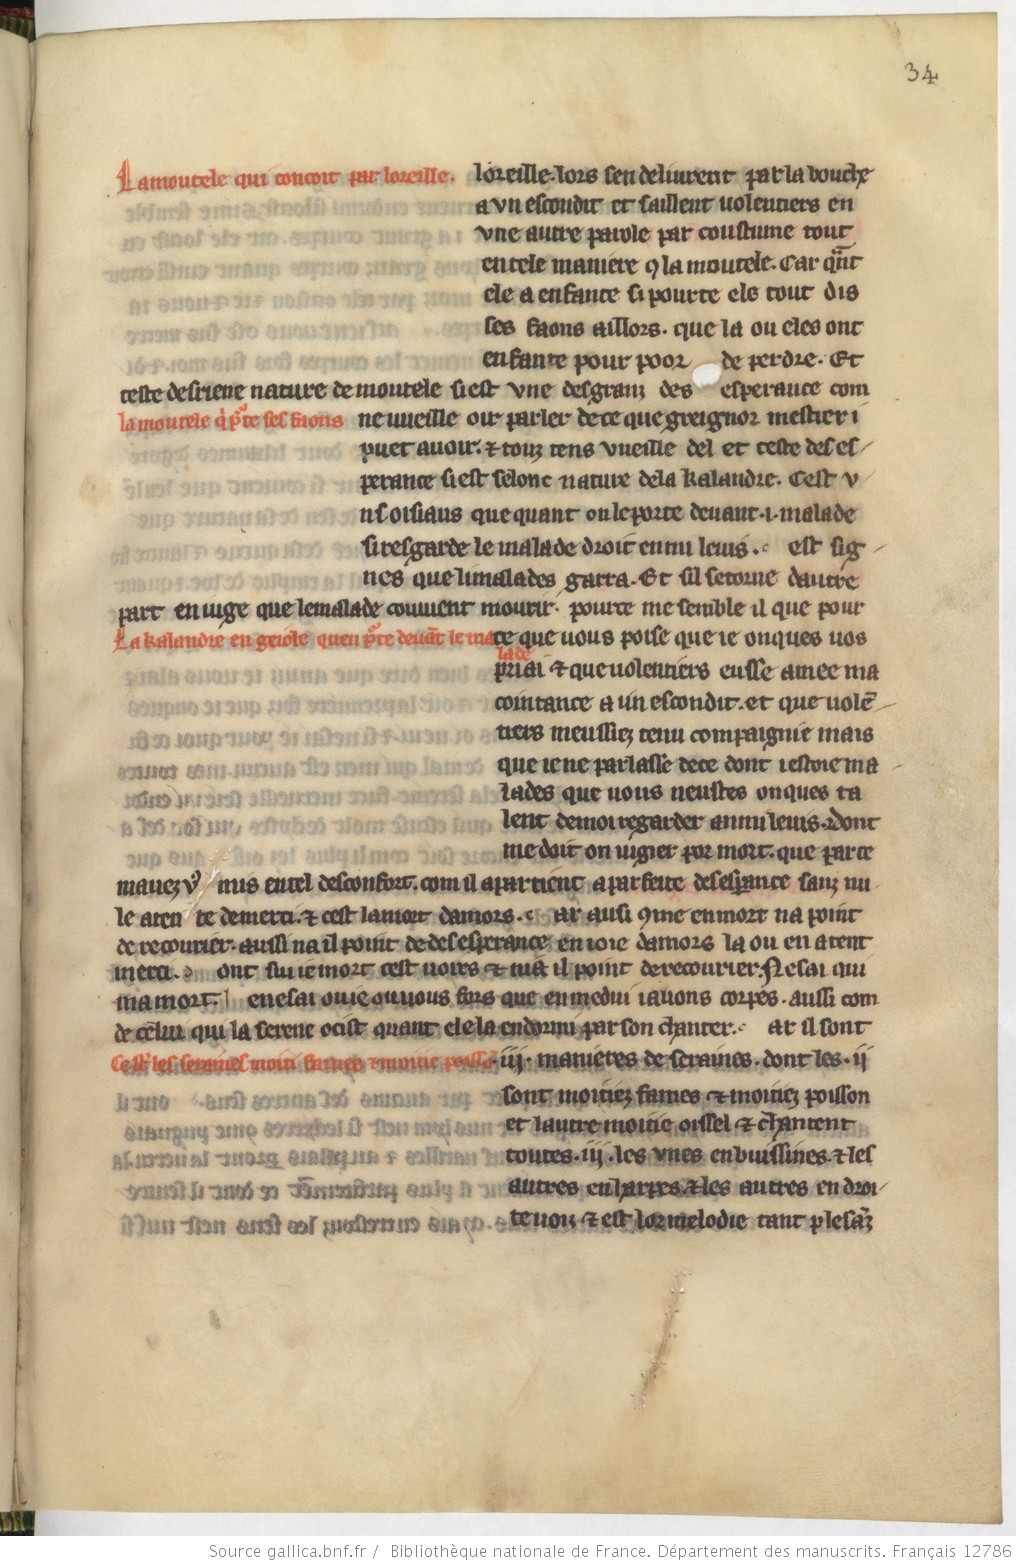 34
La moutele qui concoit par loreille.
loreille. lors sen deliurent par la bouche
a vn escondit et saillent uolentiers en
vne autre parole par coustume tout
en tele maniere ꝯ la moutele. Car qn̄t
ele a enfante si porte ele tout dis
ses faons aillors. que la ou eles ont
enfante pour poor de perdre. Et
ceste desriene nature de moutele si est vne des granz des esperance com
la moutele q̇ pͬte ses faons
ne uueille oir parler de ce que greignor mestier i
puet auoir. ⁊ touz tens vueille del et ceste deses
perance si est selonc nature de la kalandre. Cest v
ns oisiaus que quant on le porte deuant .i. malade
si resgarde le malade droit en mi leuis. est sig
nes que li malades garra. Et sil se torne dautre
part en iuge que le malade couuient mourir. pource me semble il que pour
La kalandre en geiole quen pͬte deuāt le ma
lade
ce que uous poise que ie onques uos
priai ⁊ que uolentiers eusse amee ma
cointance a un escondit. et que uolē
tiers meussiez tenu compaignie mais
que ie ne parlasse de ce dont iestoie ma
lades que uous neustes onques ta
lent de moi regarder annuleuis. dont
me doit on iugier por mort. que parce
mauez vͦ mis en tel desconfort. com il apartient a parfeite desesperance sanz nu
le aten te de merci. ⁊ cest la mort damors. ar ausi ꝯme en mort na point
de recourier. aussi na il point de desesperance en ioie damors la ou en atent
merci. ont sui ie mort cest uoirs ⁊ nia il point de recourier. Ne sai qui
ma mort. e ne sai ou ie ou uous fors que en me dui iauons corpes. aussi com
de celui qui la serene ocist quant ele la endormi par son chanter. ar il sont
Ce st̄ les seraines moiti fames ⁊ moitie poissō
.iij. manieres de seraines. dont les .ij
sont moitiez fames ⁊ moitiez poisson
et lautre moitie oissel ⁊ chantent
toutes .iij. les vnes en buissines. ⁊ les
autres en harpes. ⁊ les autres en droi
te uoiz ⁊ est lor melodie tant plesāz
Source gallica.bnf.fr / Bibliothèque nationale de France. Département des manuscrits. Français 12786